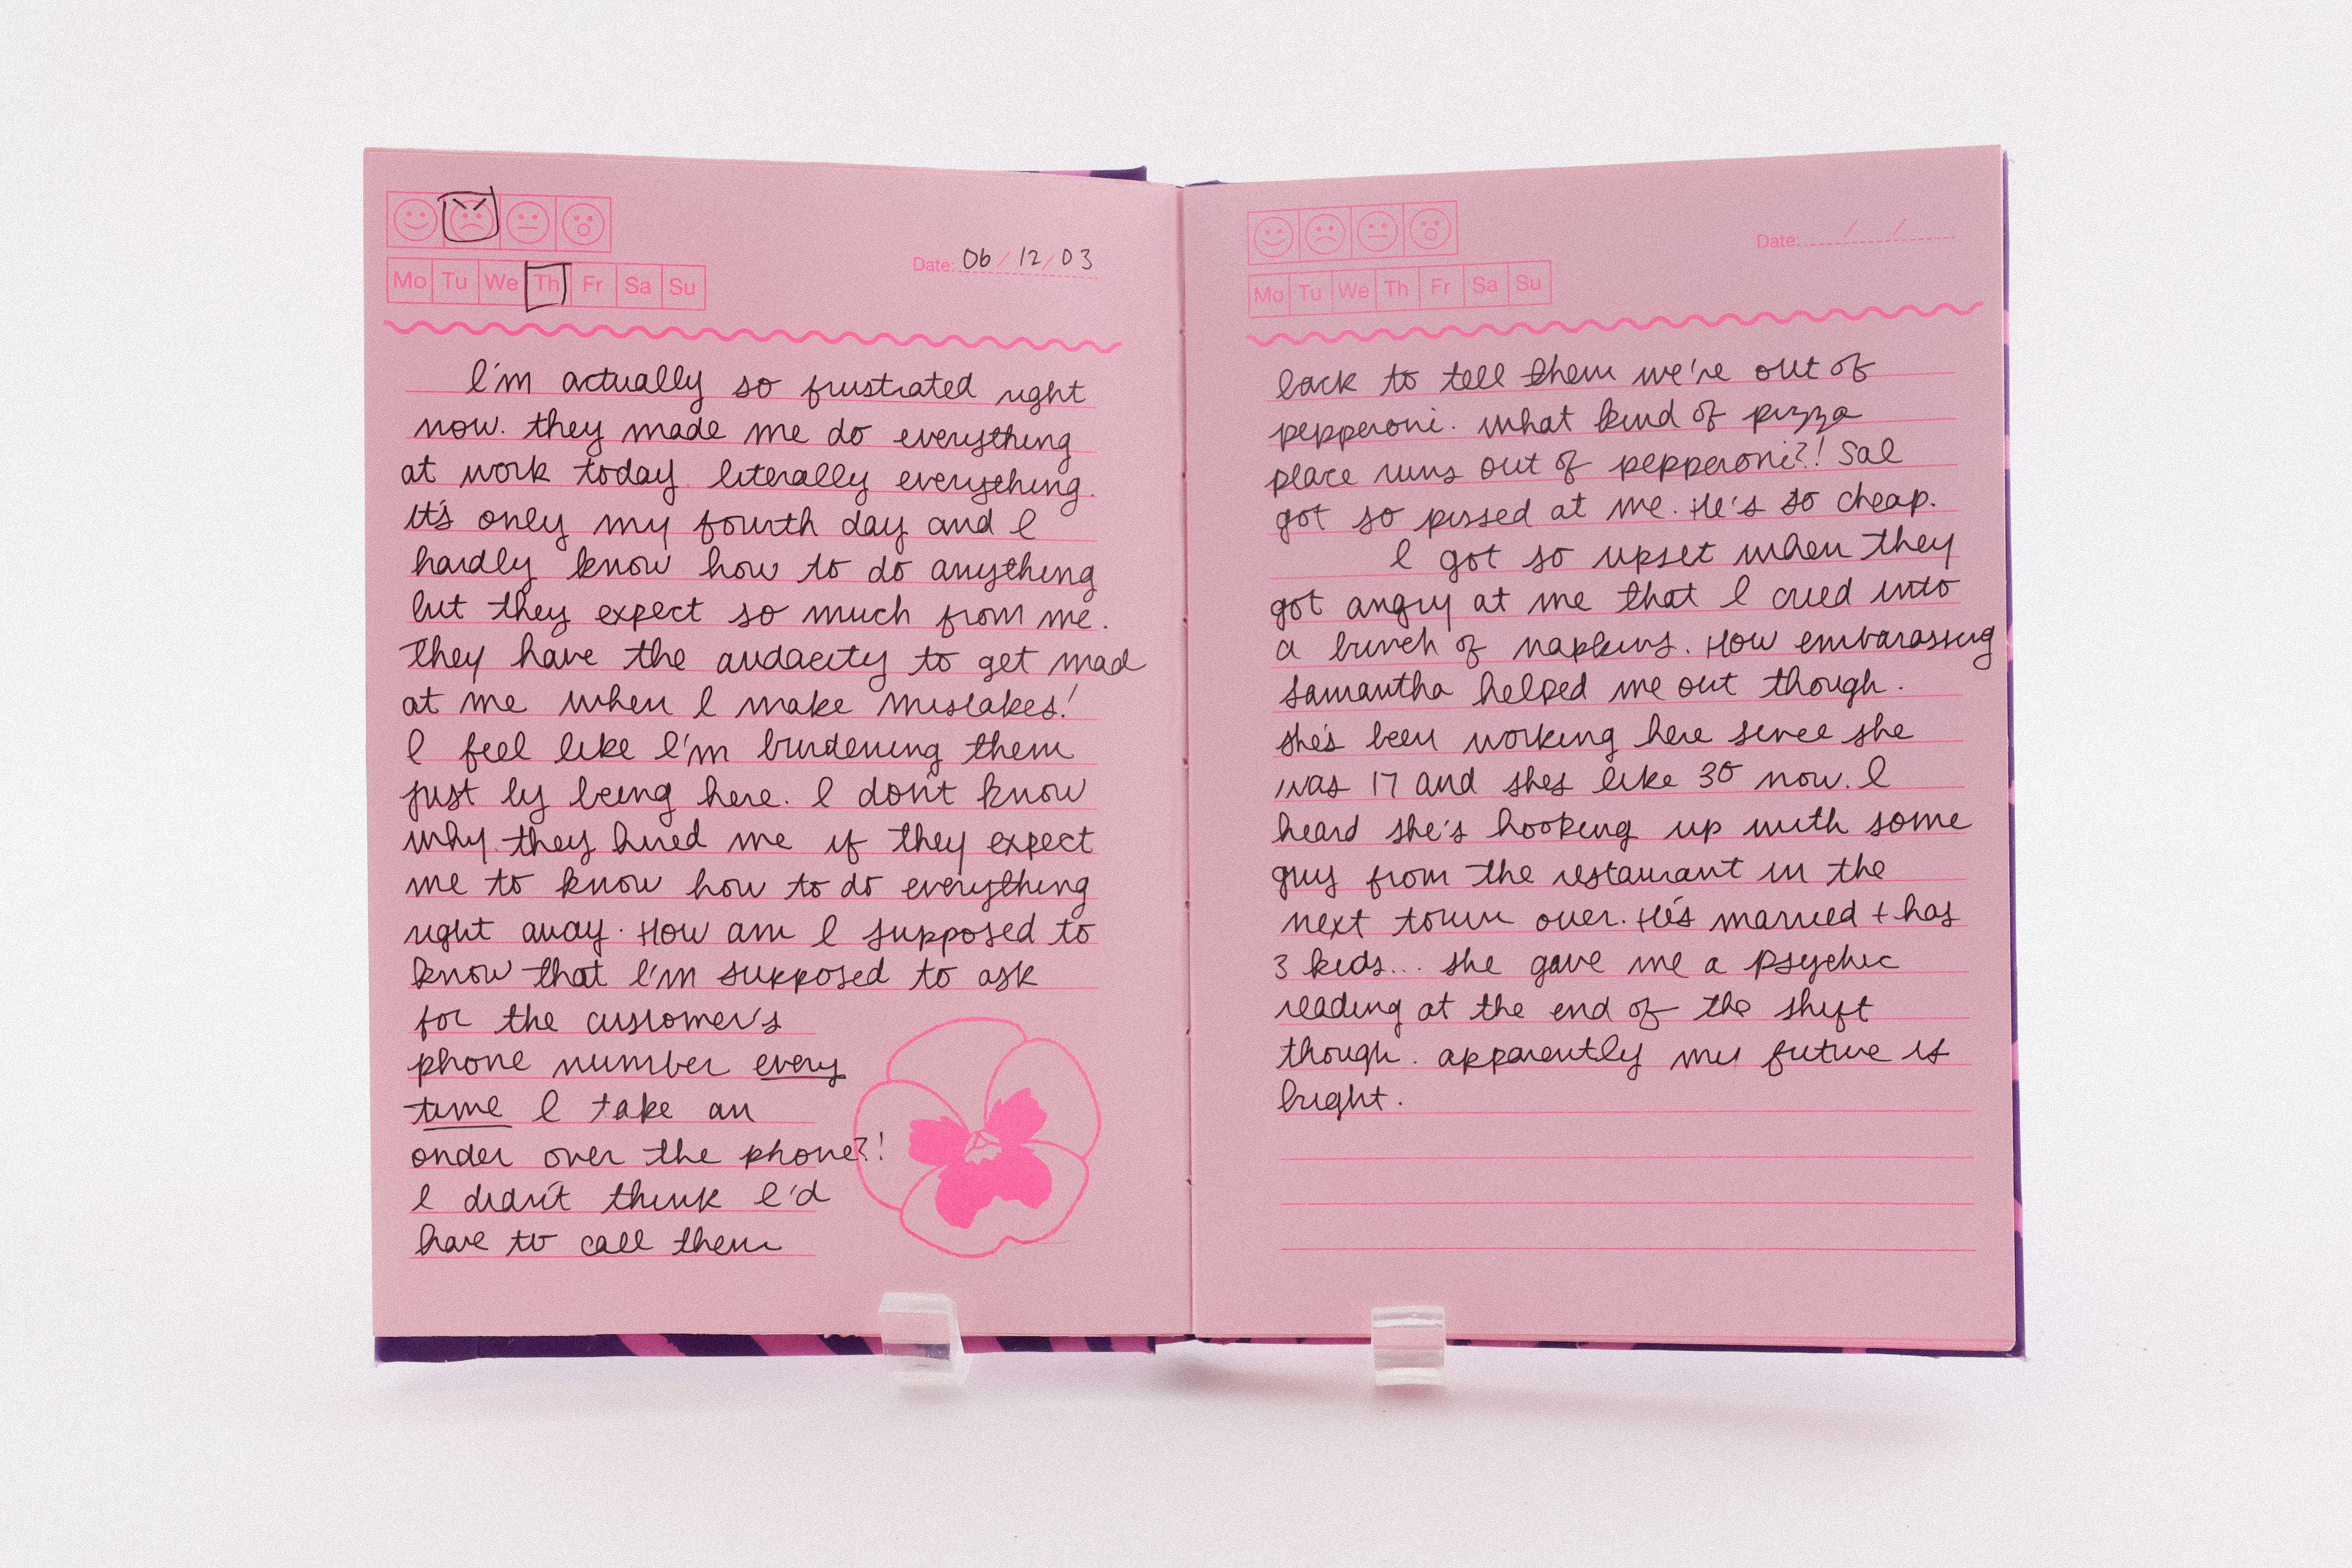 Mo Tu We Th Fr Sa Su
Date: 06/12/03
I'm actually so frustrated right
now. they made me do everything
at work today. literally everything.
it's only my fourth day and I
hardly know how to do anything
but they expect so much from me.
They have the audacity to get mad
at me when I make mistakes!
I feel like I'm burdening them
just by being here. I don't know
why they hired me if they expect
me to know how to do everything
right away. How am I supposed to
know that I'm supposed to ask
for the customer's
phone number every
time I take an
order over the phone?!
I didn't think I'd
have to call them
Mo Tu We Th Fr Sa Su
Date: / /
back to tell them we're out of
pepperoni. what kind of pizza
place runs out of pepperoni?! Sal
got so pissed at me. He's so cheap.
I got so upset when they
got angry at me that I cried into
a bunch of napkins. How embarassing
Samantha helped me out though.
she's been working here since she
was 17 and shes like 30 now. I
heard she's hooking up with some
guy from the restaurant in the
next town over. He's married + has
3 kids... she gave me a psychic
reading at the end of the shift
though. apparently my future is
bright.